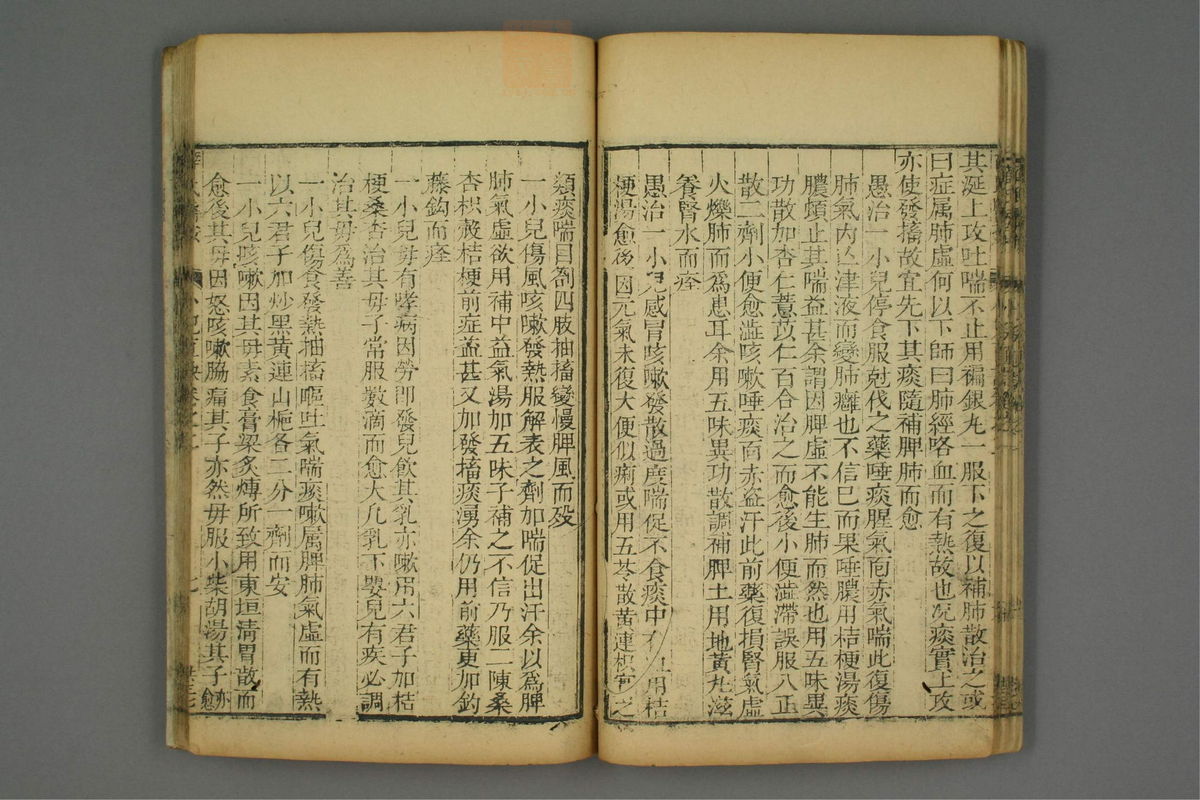 其涎上攻吐喘不止用褊銀丸一服下之復以補肺散治之或
曰症属肺虛何以下師曰肺經咯血而有熱故也况痰實上攻
亦使發搐故宜先下其痰隨補脾肺而愈
愚治一小兒停食服尅伐之藥唾痰腥氣面赤氣喘此復傷
肺氣内亡津液而變肺癰也不信已而果唾膿用桔梗湯痰
膿頓止其喘益甚余謂因脾虛不能生肺而然也用五味異
功散加杏仁薏苡仁百合治之而愈後小便澁滯誤服八正
散二劑小便愈澁咳嗽唾痰面赤盗汗此前藥復損腎氣虛
火爍肺而爲患耳余用五味異功散調補脾土用地黃丸滋
養腎水而痊
愚治一小兒感冒咳嗽發散過度喘促不食痰中有血用桔
梗湯愈後因元氣未復大便似痢或用五苓散黄連枳實之
類痰喘目劄四肢抽搐變慢脾風而殁
一小兒傷風咳嗽發熱服解表之劑加喘促出汗余以爲脾
肺氣虛欲用補中益氣湯加五味子補之不信乃服二陳桑
杏枳殼桔梗前症益甚又加發搐痰湧余仍用前藥更加釣
藤鈎而痊
一小兒母有哮病因勞即發兒飲其乳亦嗽用六君子加桔
梗桑杏治其母子常服數滴而愈大凡乳下嬰兒有疾必調
治其母爲善
一小兒傷食發熱抽搐嘔吐氣喘痰嗽属脾肺氣虛而有熱
以六君子加炒黑黄連山梔各二分一劑而安
一小兒咳嗽因其母素食膏粱炙煿所致用東垣清胃散而
愈後其母因怒咳嗽脇痛其子亦然母服小柴胡湯其子亦愈